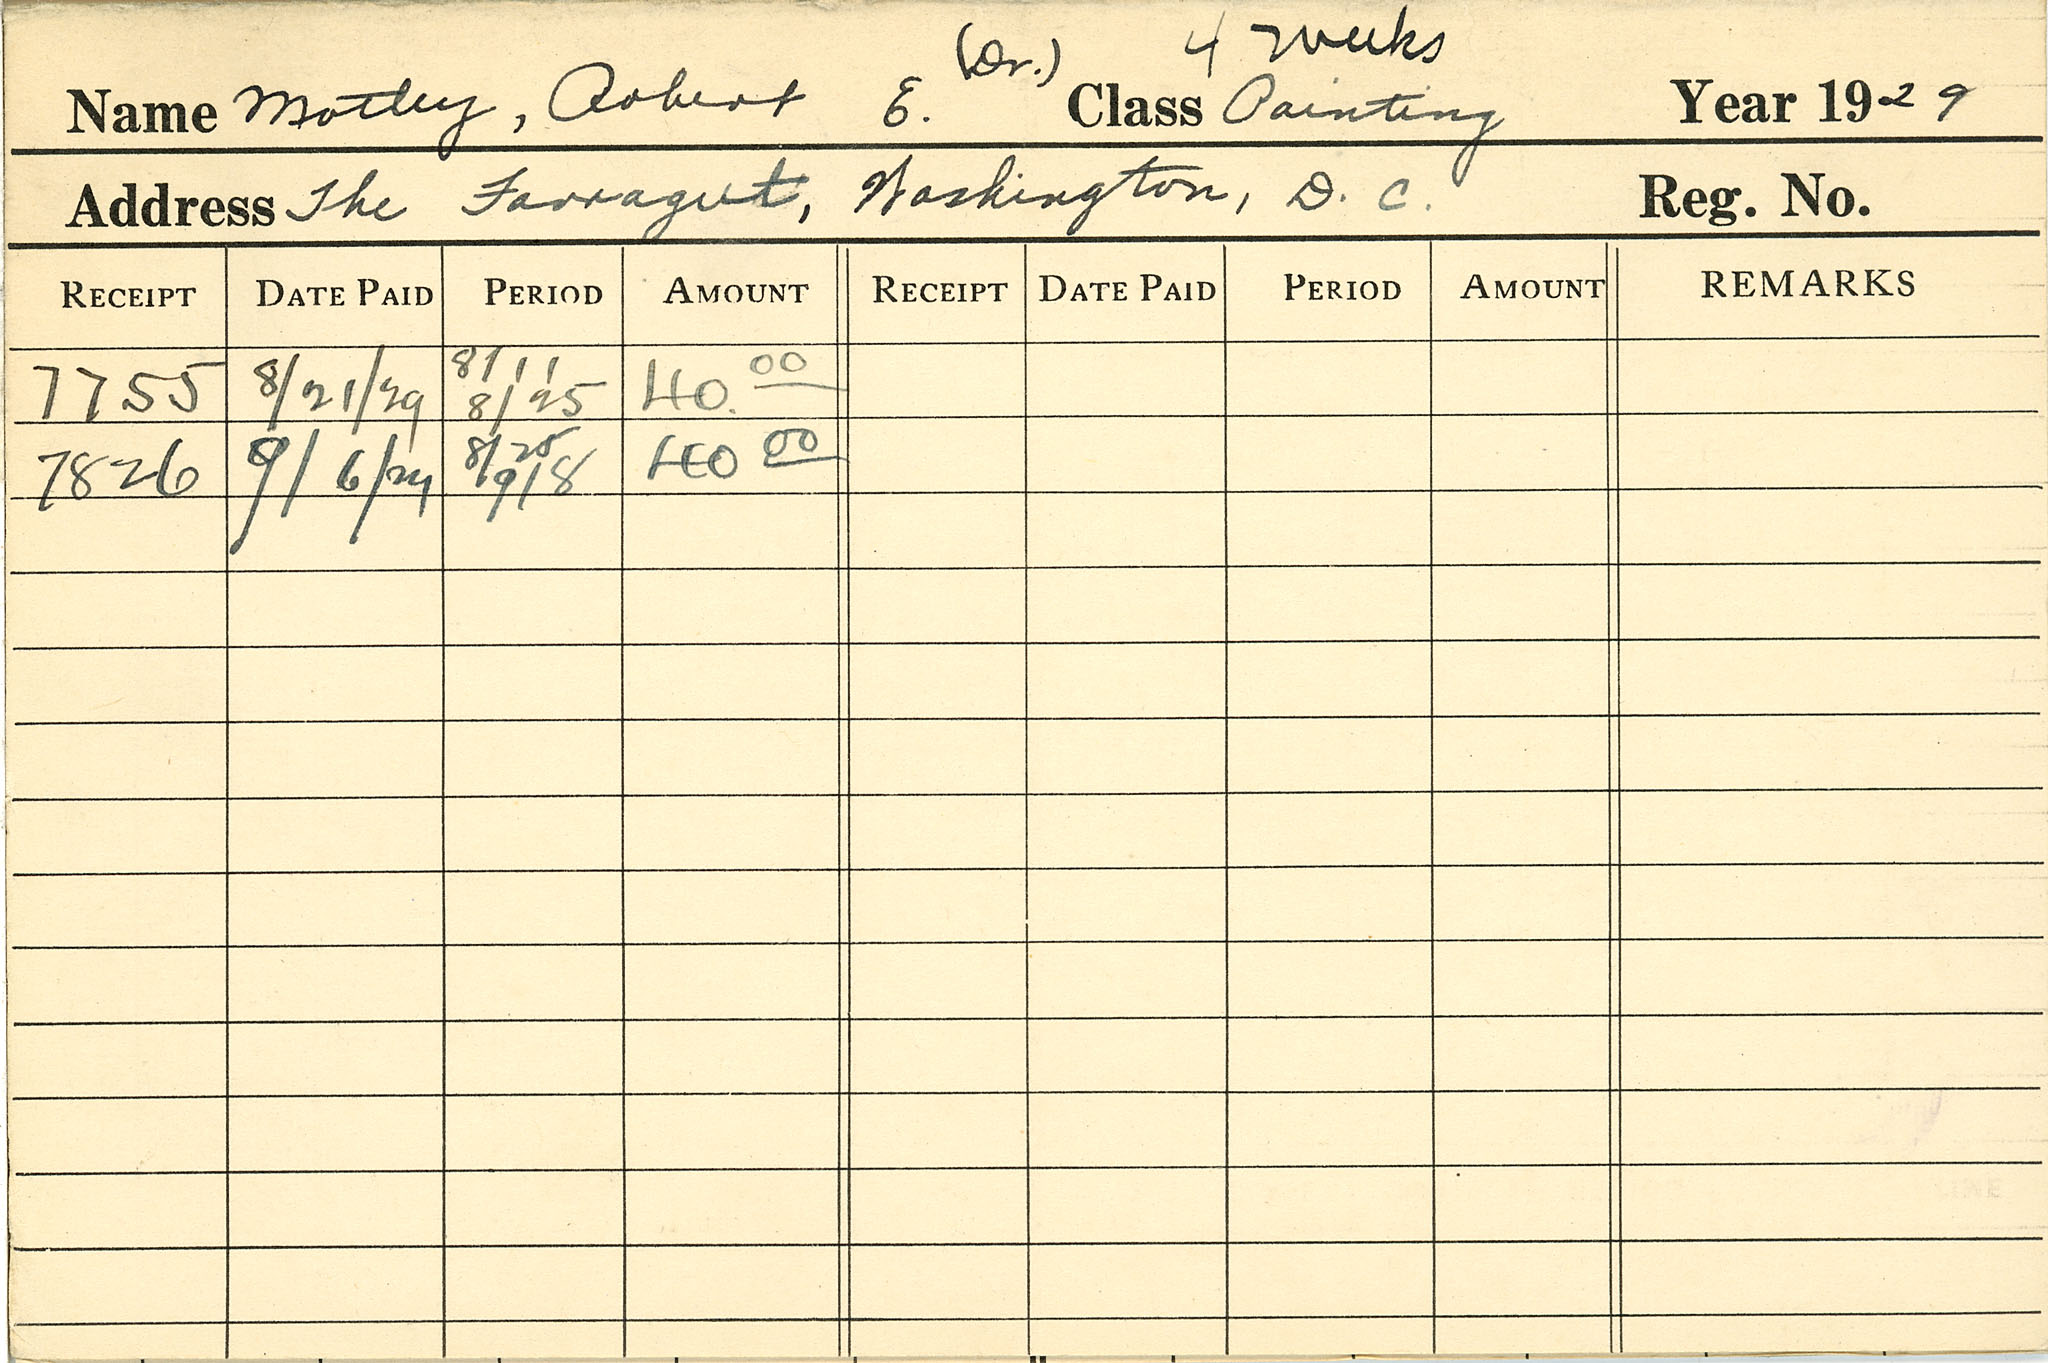 (Dr.) 4 Weeks
Name Motley, Robert E. Class Painting Year 1929
Address The Farragut, Washington, D. C. Reg. No.
RECEIPT DATE PAID PERIOD AMOUNT RECEIPT DATE PAID PERIOD AMOUNT REMARKS
8/11
7755 8/21/29 8/25 40.00
8/25
7826 9/6/29 9/8 40 00